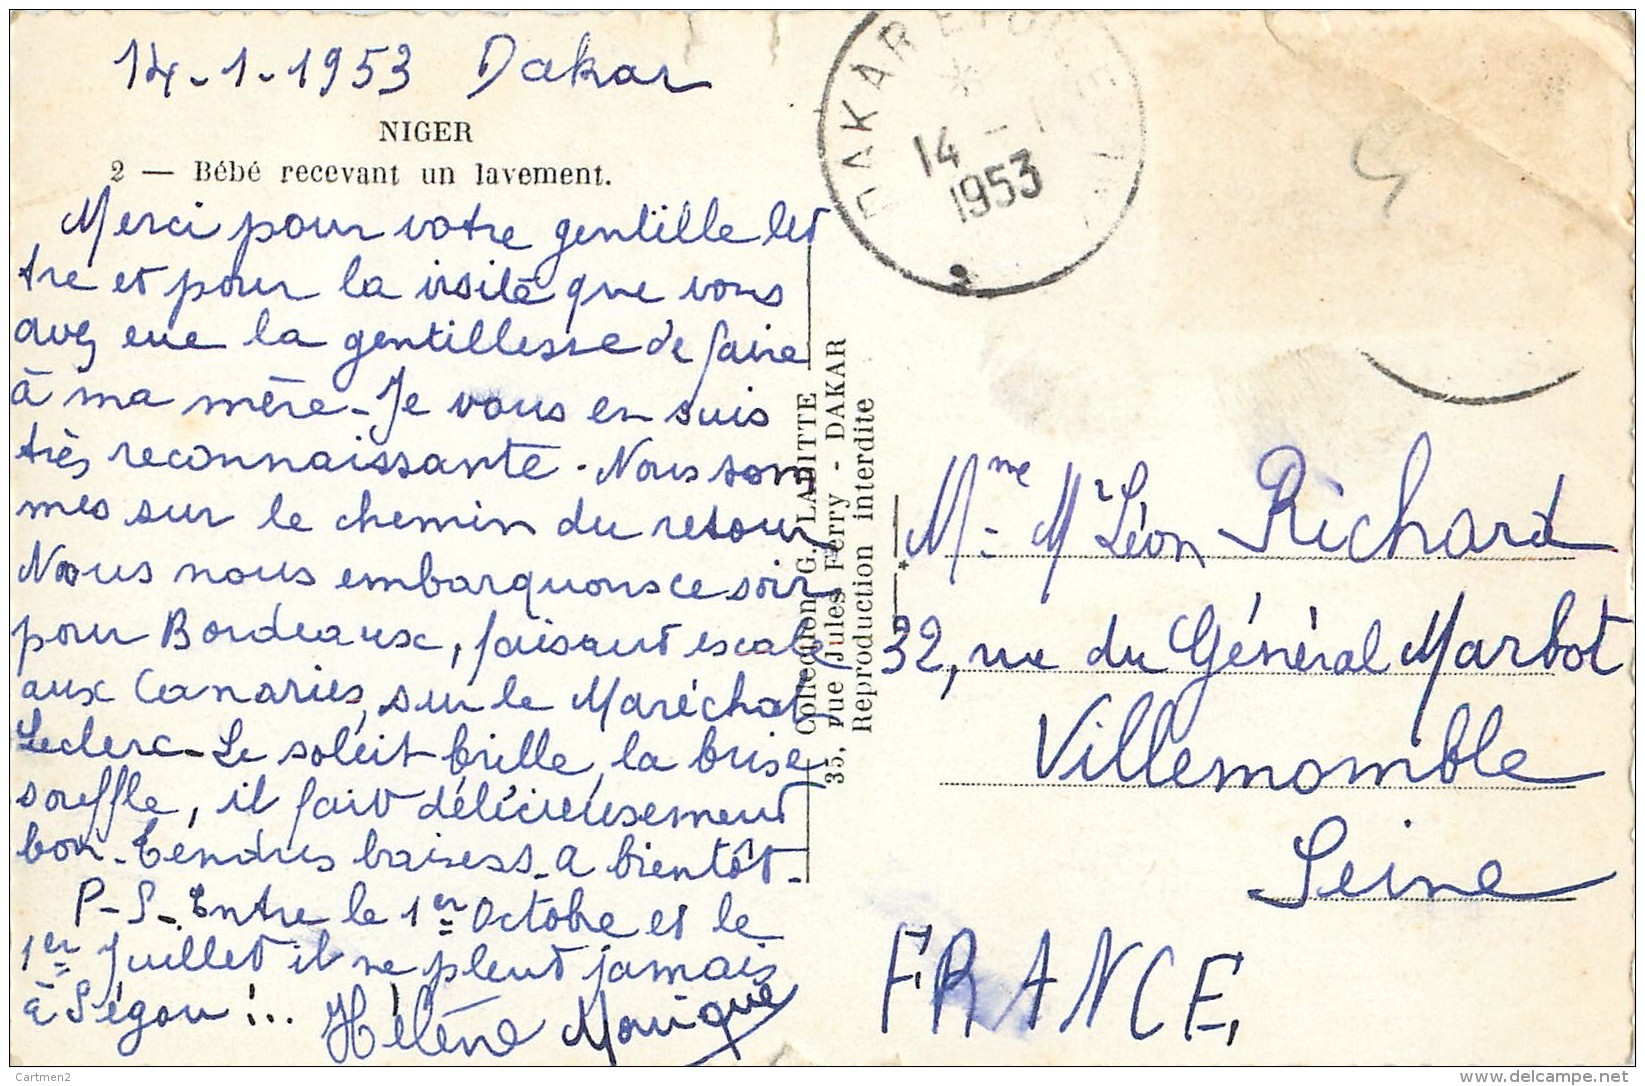 14-1-1953 Dakar
NIGER
2 — Bébé recevant un lavement.
Merci pour votre gentille let
tre et pour la visite que vous
avez eue la gentillesse de faire
à ma mère - Je vous en suis
très reconnaissante - Nous som
mes sur le chemin du retour
Nous nous embarquons ce soir
pour Bordeaux, faisant escale
aux Canaries, sur le Maréchal
Leclerc - Le soleil brille, la brise
souffle, il fait délicieusement
bon - Tendres baisers - A bientôt -
P-S- Entre le 1er Octobre et le
1er Juillet il ne pleut jamais
à Ségou !...
Hélène Monique
Collection G. LABITTE
35, rue Jules Ferry - DAKAR
Reproduction interdite
DAKAR
14 - 1
1953
2
Mme Mr Léon Richard
32, rue du Général Marbot
Villemomble
Seine
FRANCE
Cartmen2
delcampe.net